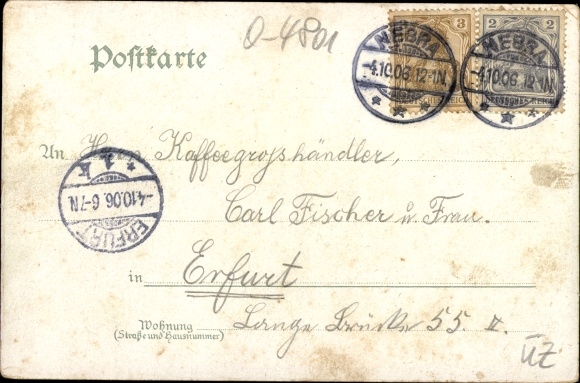 O-4801
3 2
NEBRA NEBRA
-4.10.06.12-1N. -4.10.06.12-1N.
Postkarte
DEUTSCHES REICH DEUTSCHES REICH
An Herrn Kaffeegroßhändler,
* 1. k
-4.10.06. 6-7N.
ERFURT
Carl Fischer u. Frau.
in Erfurt
Wohnung
(Straße und Hausnummer)
Lange Brücke 55. II.
ÜZ